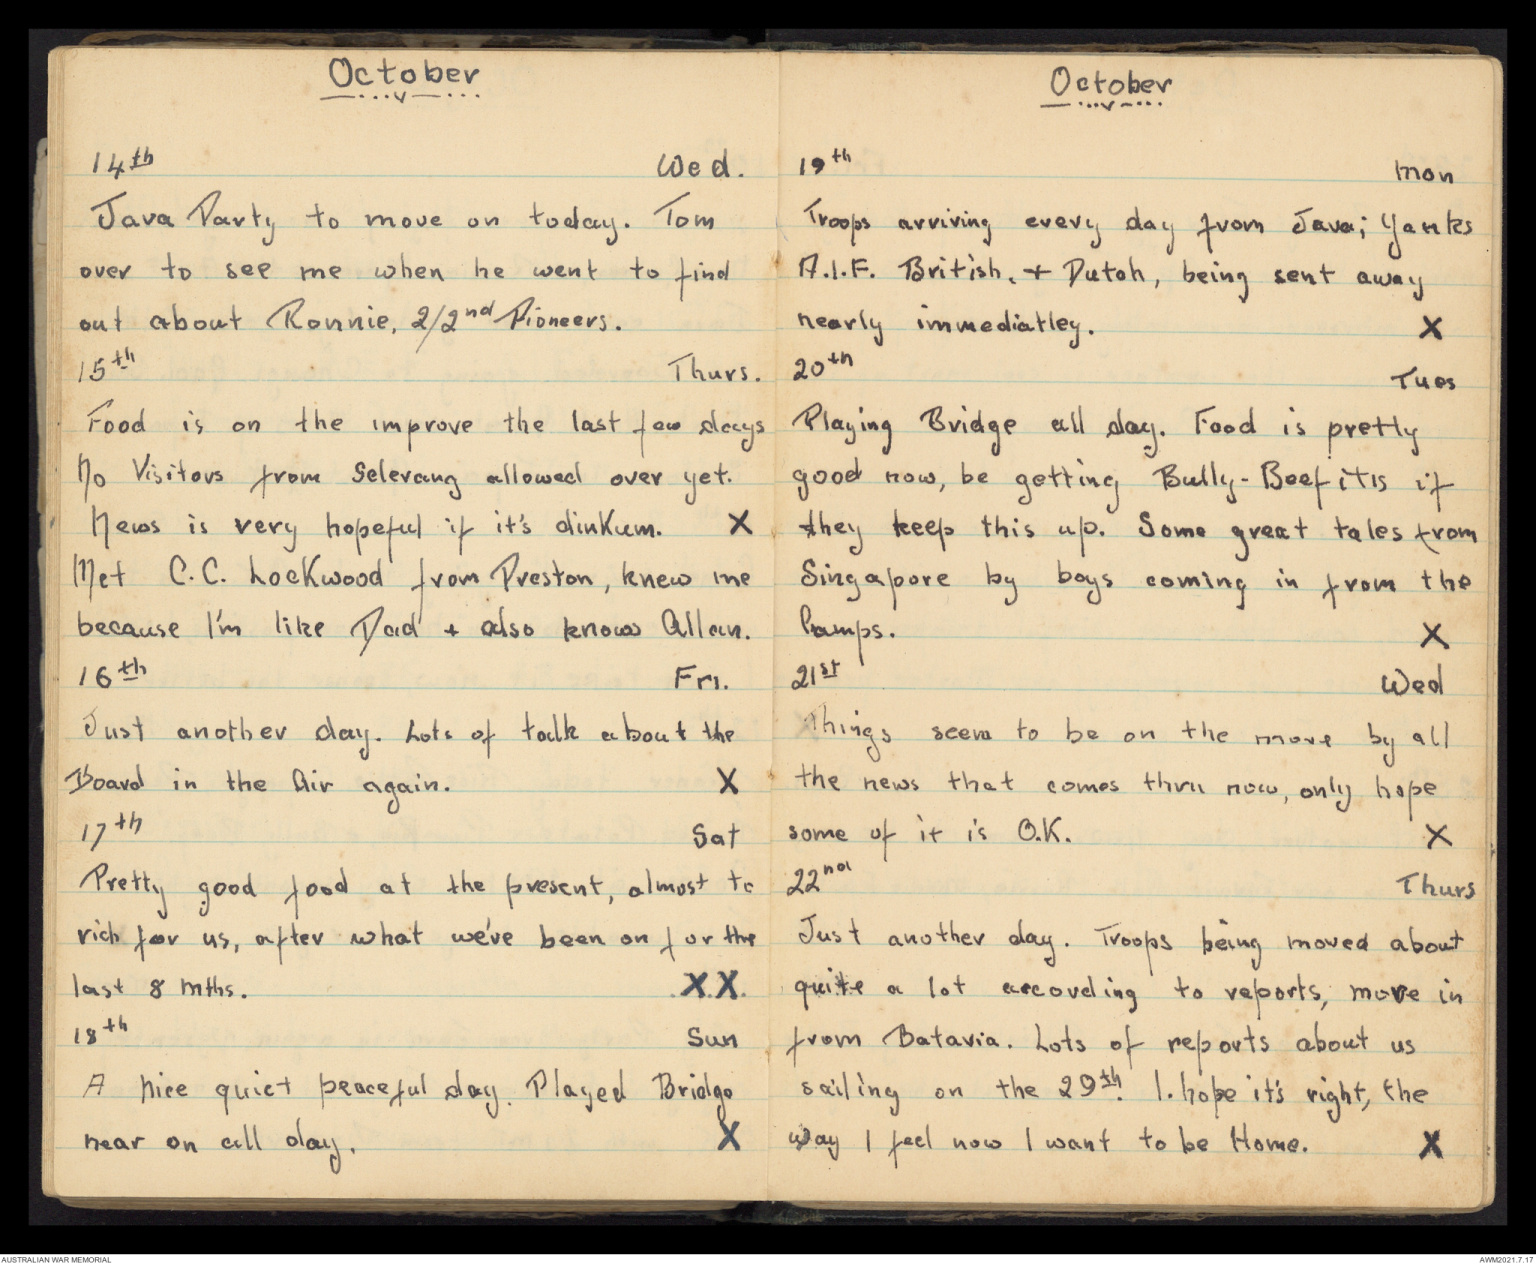 October
14th Wed.
Java Party to move on today. Tom
over to see me when he went to find
out about Ronnie, 2/2nd Pioneers.
15th Thurs.
Food is on the improve the last few days
No Visitors from Selerang allowed over yet.
News is very hopeful if it's dinkum. X
Met C.C. Lockwood from Preston, knew me
because I'm like Dad + also knows Allan.
16th Fri.
Just another day. Lots of talk about the
Board in the Air again. X
17th Sat
Pretty good food at the present, almost to
rich for us, after what we've been on for the
last 8 mths. X.X.
18th Sun
A nice quiet peaceful day. Played Bridge
near on all day. X
October
19th Mon
Troops arriving every day from Java; Yanks
A.I.F. British, + Dutch, being sent away
nearly immediatley. X
20th Tues
Playing Bridge all day. Food is pretty
good now, be getting Bully-Beefitis if
they keep this up. Some great tales from
Singapore by boys coming in from the
Camps. X
21st Wed
Things seem to be on the move by all
the news that comes thru now, only hope
some of it is O.K. X
22nd Thurs
Just another day. Troops being moved about
quite a lot accoveling to reports, move in
from Batavia. Lots of reports about us
sailing on the 29th. I.hope it's right, the
way I feel now I want to be Home. X
AUSTRALIAN WAR MEMORIAL AWM2021.7.17